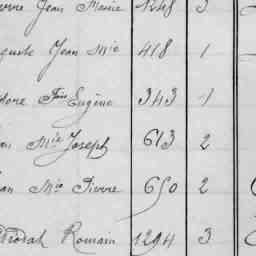 Jean Marie 1248 3
Jean Mie 418 1
Fois Eugène 343 1
Mie Joseph 613 2
Mie Pierre 650 2
Romain 1294 3